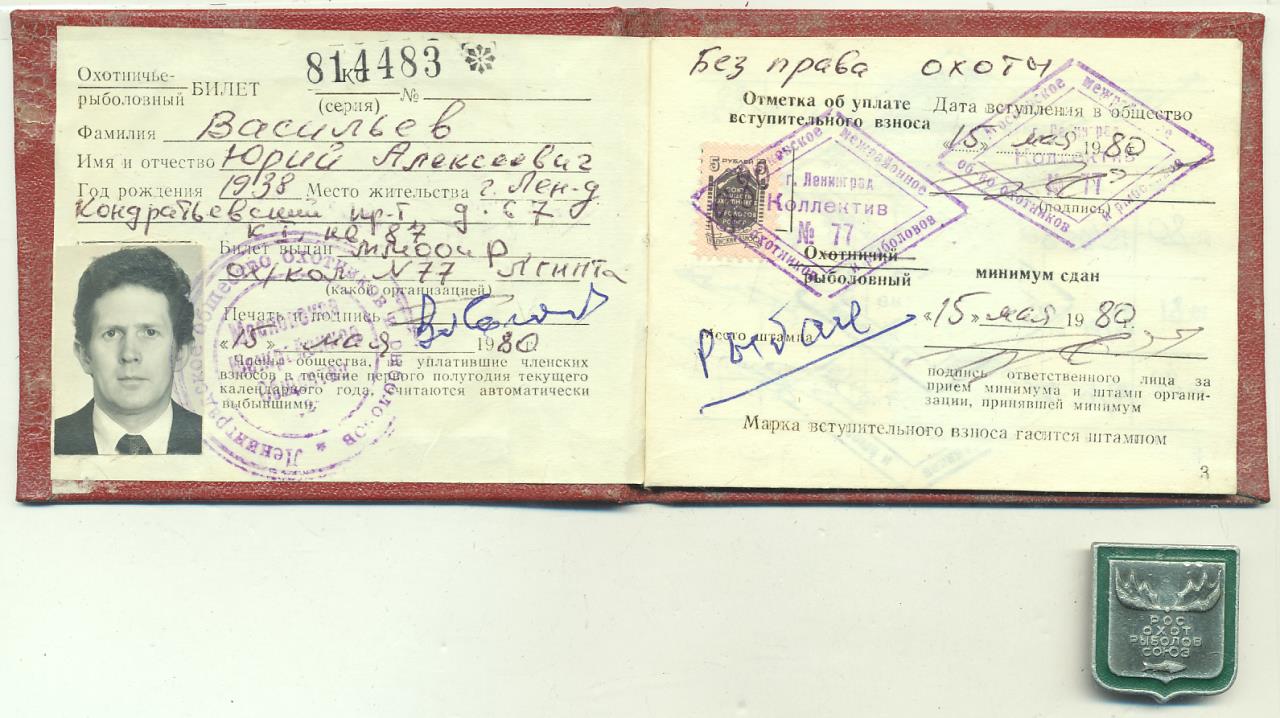 814483
Охотничье-
рыболовный БИЛЕТ
(серия) №
Фамилия Васильев
Имя и отчество Юрий Алексеевич
Год рождения 1938 Место жительства г. Лен-д
Кондратьевский пр-т, д. 67
кв. 87
Билет выдан
кол. N77
(какой организацией)
Печать и подпись
«15» мая 1980
Члены общества, не уплатившие членских
взносов в течение первого полугодия текущего
календарного года, считаются автоматически
выбывшими.
Без права охоты
Отметка об уплате
вступительного взноса
Дата вступления в общество
«15» мая 1980
(подпись)
5 РУБЛЕЙ 5
межрайонное
г. Ленинград
Коллектив
№ 77
охотников и рыболовов
межрайонное
Ленинград
Коллектив
№ 77
об-во охотников и рыболовов
Охотничий
рыболовный
минимум сдан
«15» мая 1980 г.
Место штампа
подпись ответственного лица за
прием минимума и штамп органи-
зации, принявшей минимум
Марка вступительного взноса гасится штампом
3
РОС
ОХОТ
РЫБОЛОВ
СОЮЗ